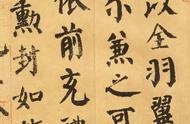 以全羽翼
尒兼之可
依前充禮
勳封如